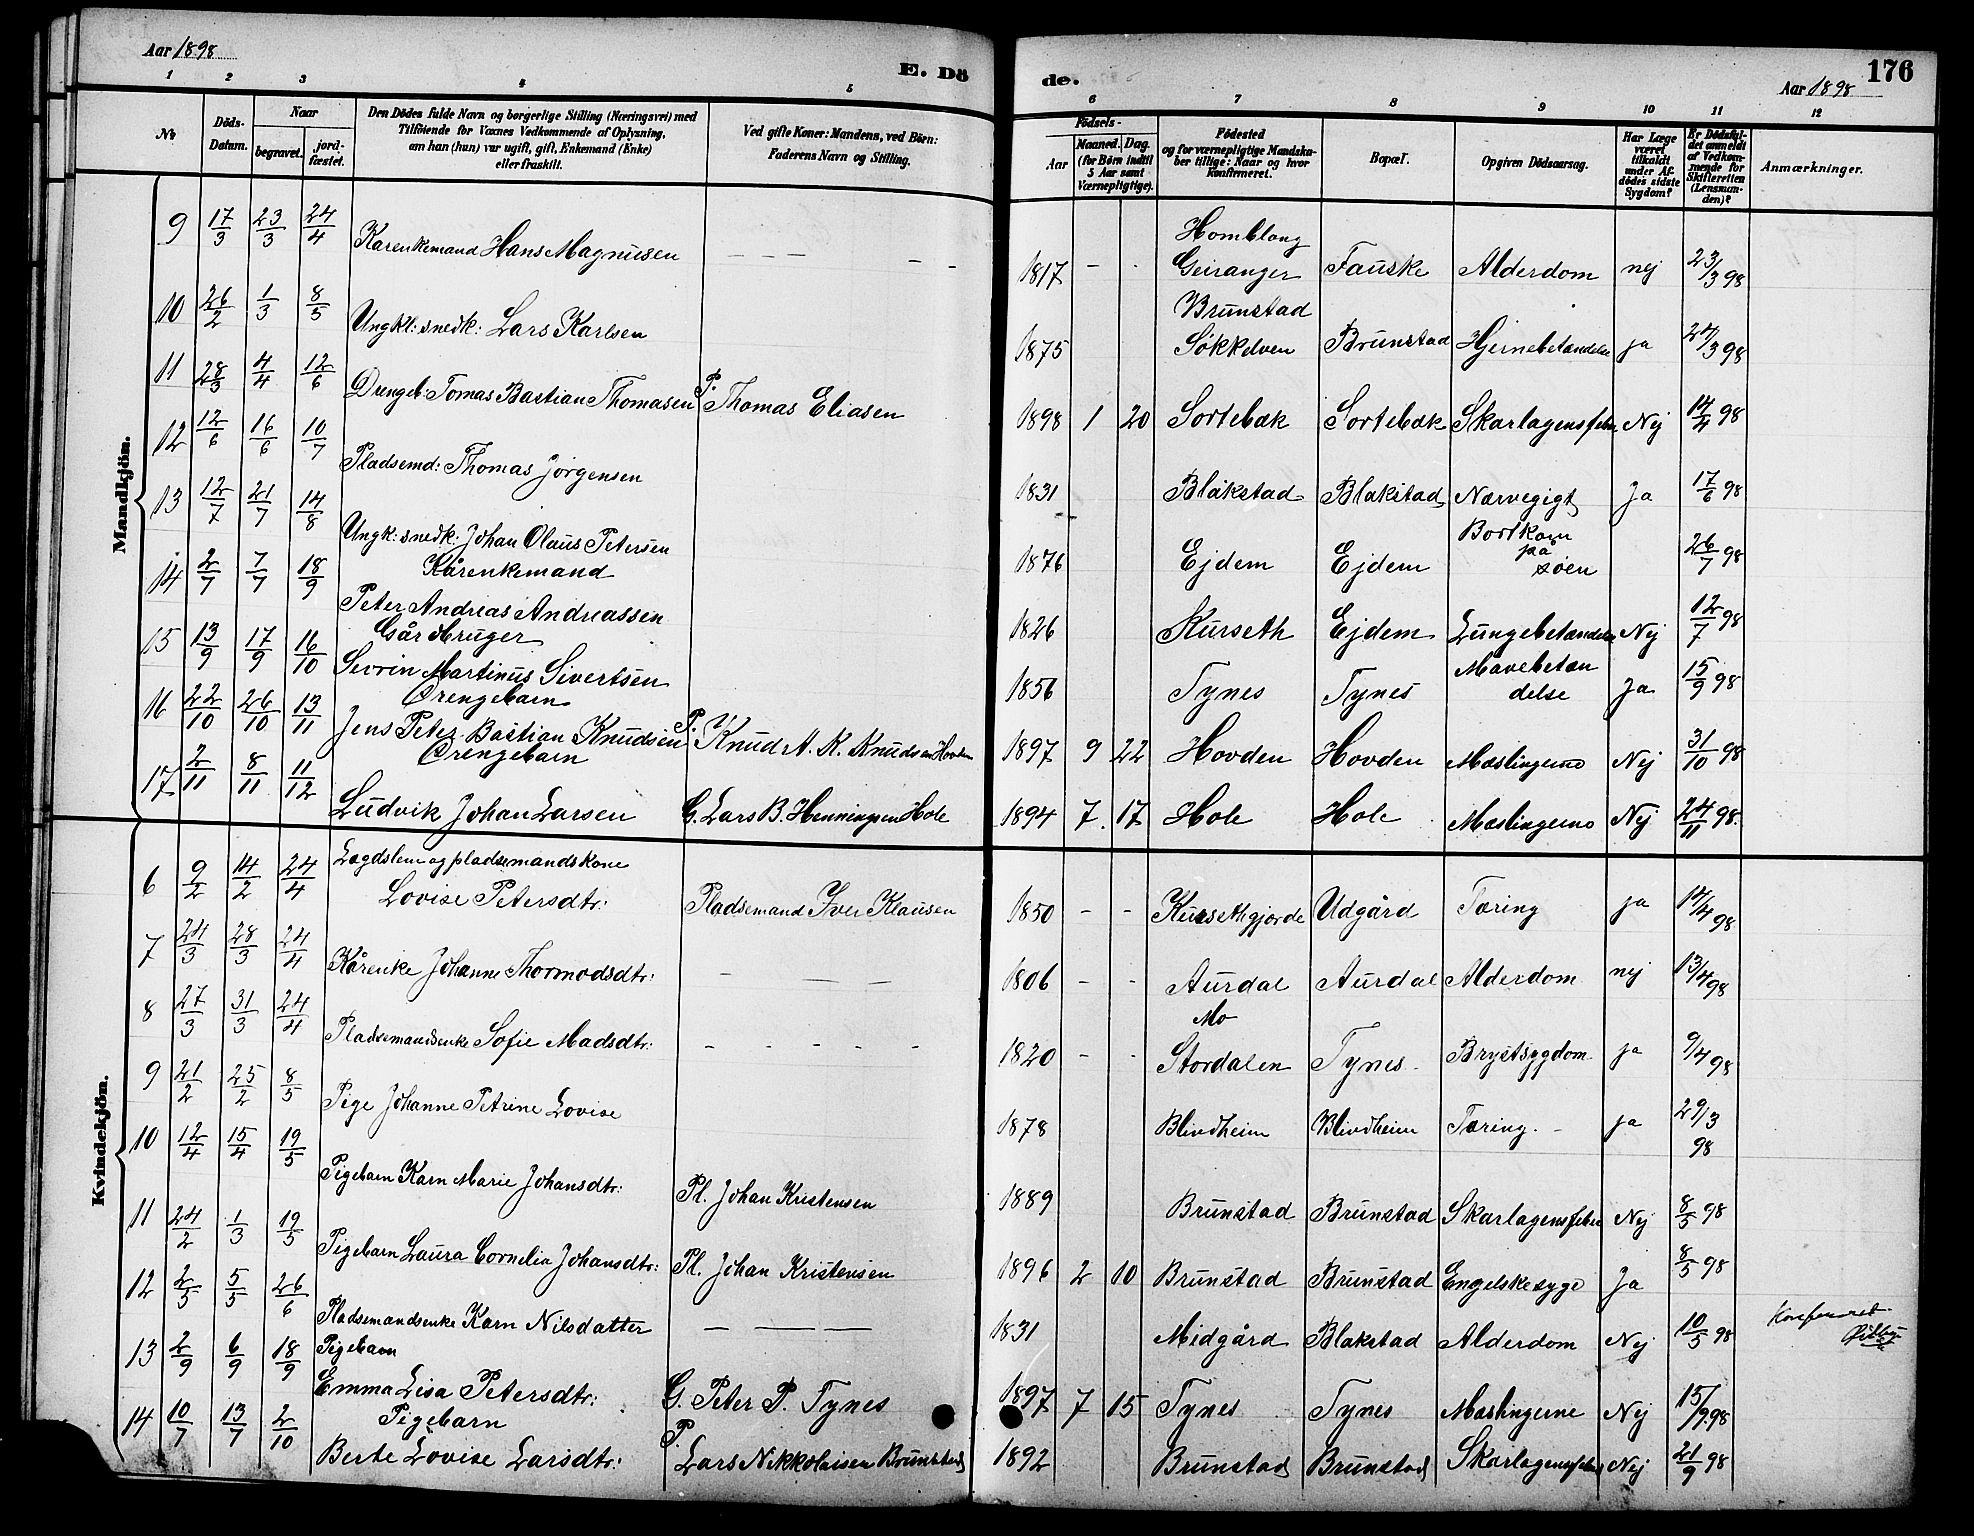 Aar 1898
E. Dö
de.
176
Aar 1898
1 2 3 4 5 6 7 8 9 10 11 12
No
Döds-Datum.
Naar
begravet.
jord-fæstet.
Den Dödes fulde Navn og borgerlige Stilling (Næringsvei) med
Tilföiende for Voxnes Vedkommende af Oplysning,
om han (hun) var ugift, gift, Enkemand (Enke)
eller fraskilt.
Ved gifte Koner: Mandens, ved Börn:
Faderens Navn og Stilling.
Födsels-
Aar
Maaned. Dag.
(for Börn indtil
5 Aar samt
Værnepligtige).
Födested
og for værnepligtige Mandska-
ber tillige: Naar og hvor
Konfirmeret.
Bopæl.
Opgiven Dödsaarsag.
Har Læge
været
tilkaldt
under Af-
dödes sidste
Sygdom?
Er Dödsfal-
det anmeldt
af Vedkom-
mende for
Skifteretten
(Lensman-
den)?
Anmærkninger.
Mandkjön.
9 17/3 23/3 24/4 Kårenkemand Hans Magnusen — — — — — 1817 - - Homblong Geiranger Fauske Alderdom nej 23/3 98
10 26/2 1/3 8/5 Ungkl: snedk: Lars Karlsen 1875 Brunstad Søkkelven Brunstad Hjernebetændelse ja 24/3 98
11 28/3 4/4 12/6 Drengeb: Tomas Bastian Thomasen P. Thomas Eliasen 1898 1 20 Sortebæk Sortebæk Skarlagensfeber Nej 14/4 98
12 12/6 16/6 10/7 Pladsemd: Thomas Jørgensen 1831 Blakstad Blakstad Nærvegigt Ja 17/6 98
13 12/7 21/7 14/8 Ungk: snedk: Johan Olaus Petersen 1876 Ejdem Ejdem Bortkom på søen 26/7 98
14 2/7 7/7 18/9 Kårenkemand Peter Andreas Andreassen 1826 Kurseth Ejdem Lungebetændelse Nej 12/7 98
15 13/9 17/9 16/10 Gårdbruger Sevrin Martinus Sivertsen 1856 Tynes Tynes Mavebetændelse Ja 15/9 98
16 22/10 26/10 13/11 Drengebarn Jens Peter Bastian Knudsen P. Knud A. K. Knudsen Hovden 1897 9 22 Hovden Hovden Mæslingerne Nej 31/10 98
17 2/11 8/11 11/12 Drengebarn Ludvik Johan Larsen G. Lars B. Henningsen Hole 1894 7 17 Hole Hole Mæslingerne Nej 24/11 98.
Kvindekjön.
6 9/2 14/2 24/4 Lægdslem og pladsemandskone Lovise Petersdtr: Pladsemand Iver Klausen 1850 - - Kursethgjærde Udgård Tæring ja 14/4 98
7 24/3 28/3 24/4 Kårenke Johanne Thormodsdtr: — — — 1806 - - Aurdal Aurdal Alderdom nej 13/4 98
8 27/3 31/3 24/4 Pladsemandsenke Sofie Madsdtr: - - - - - 1820 - - Mo Stordalen Tynes Brystsygdom ja 9/4 98
9 21/2 25/2 8/5 Pige Johanne Petrine Lovise 1878 Blindheim Blindheim Tæring. - ja 29/3 98
10 12/4 15/4 19/5 Pigebarn Karn Marie Johansdtr: Pl. Johan Kristensen 1889 Brunstad Brunstad Skarlagensfeber Nej 8/5 98
11 24/2 1/3 19/5 Pigebarn Laura Cornelia Johansdtr: Pl. Johan Kristensen 1896 2 10 Brunstad Brunstad Engelskesyge Ja 8/5 98
12 2/5 5/5 26/6 Pladsemandsenke Karn Nilsdatter — — — 1831 Midgård Blakstad Alderdom Nej 10/5 98
13 2/9 6/9 18/9 Pigebarn Emma Lisa Petersdtr: G. Peter P. Tynes 1897 7 15 Tynes Tynes Mæslingerne Nej 15/9 98
14 10/7 13/7 2/10 Pigebarn Berte Lovise Larsdtr: P. Lars Nikkolaisen Brunstad 1892 Brunstad Brunstad Skarlagensfeber Nej 21/9 98